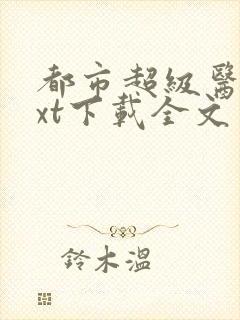 都市超級醫
xt下載全文
鈴木溫